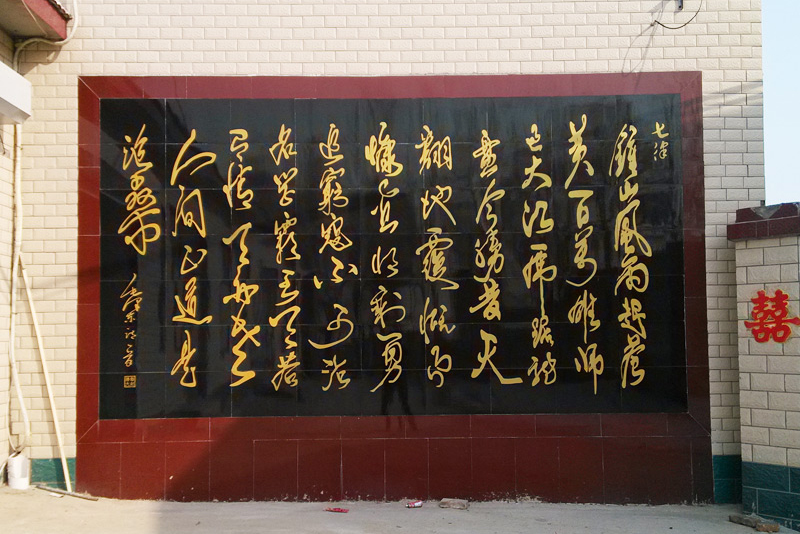 七律
鐘山風雨起蒼
黃百萬雄师
过大江虎踞龍
盘今勝昔天
翻地覆慨而
慷宜将剩勇
追窮寇不可沽
名学霸王天若
有情天亦老
人间正道是
沧桑
囍